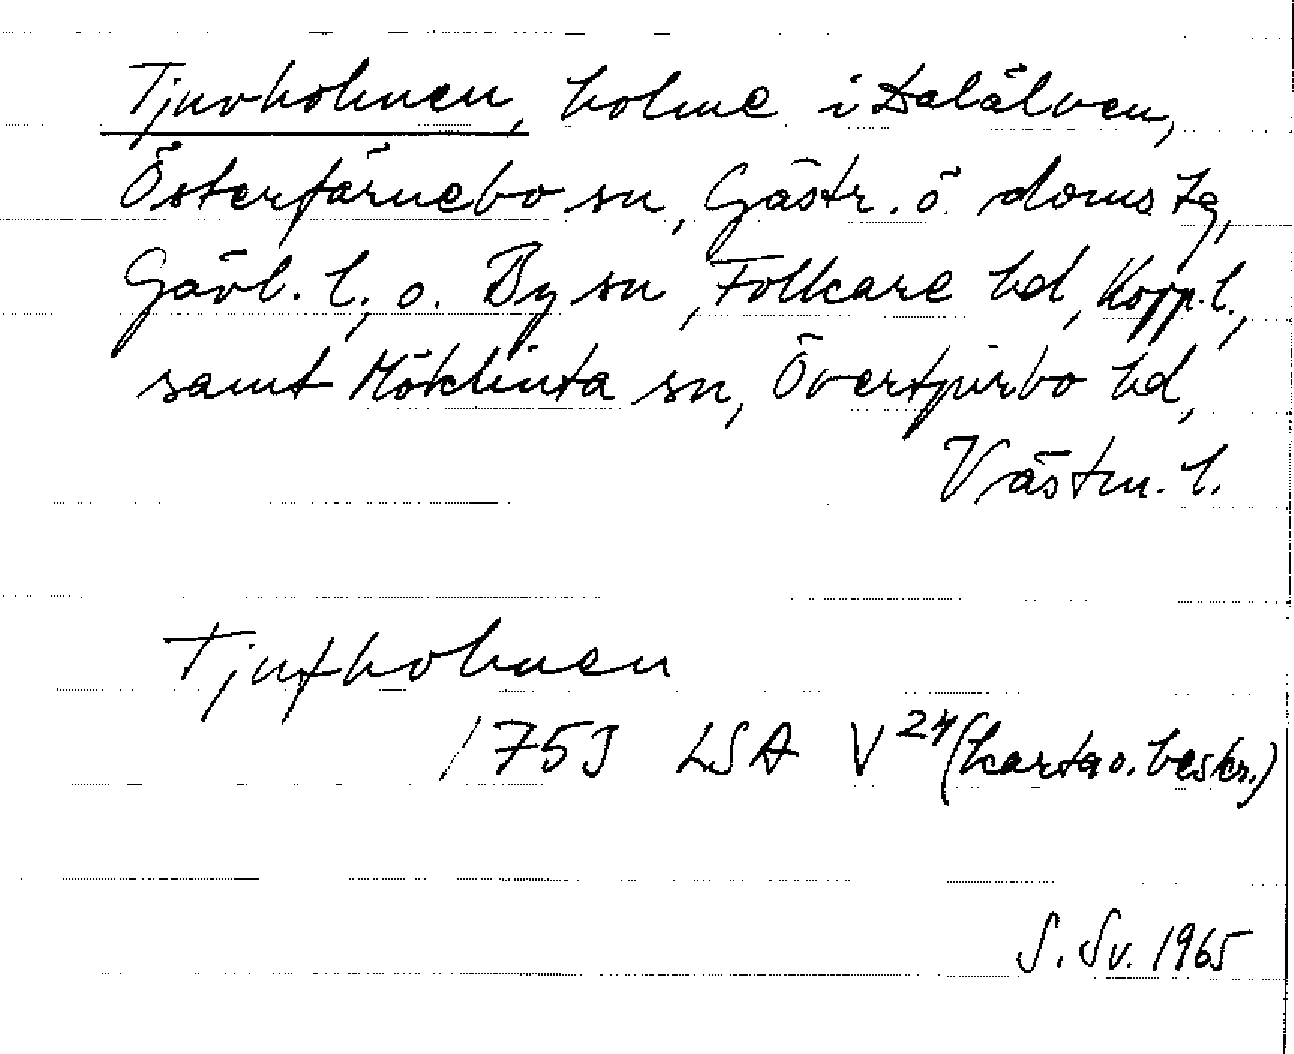 Tjuvholmen, holme i Dalälven,
Österfärnebo sn, Gästr. ö domstg,
Gävl. l., o. By sn, Folkare hd, Kopp. l.,
samt Möklinta sn, Övertjurbo hd,
Västm. l.
Tjufholmen
1753 LSA V²⁴ (karta o. beskr.)
S. Sv. 1965